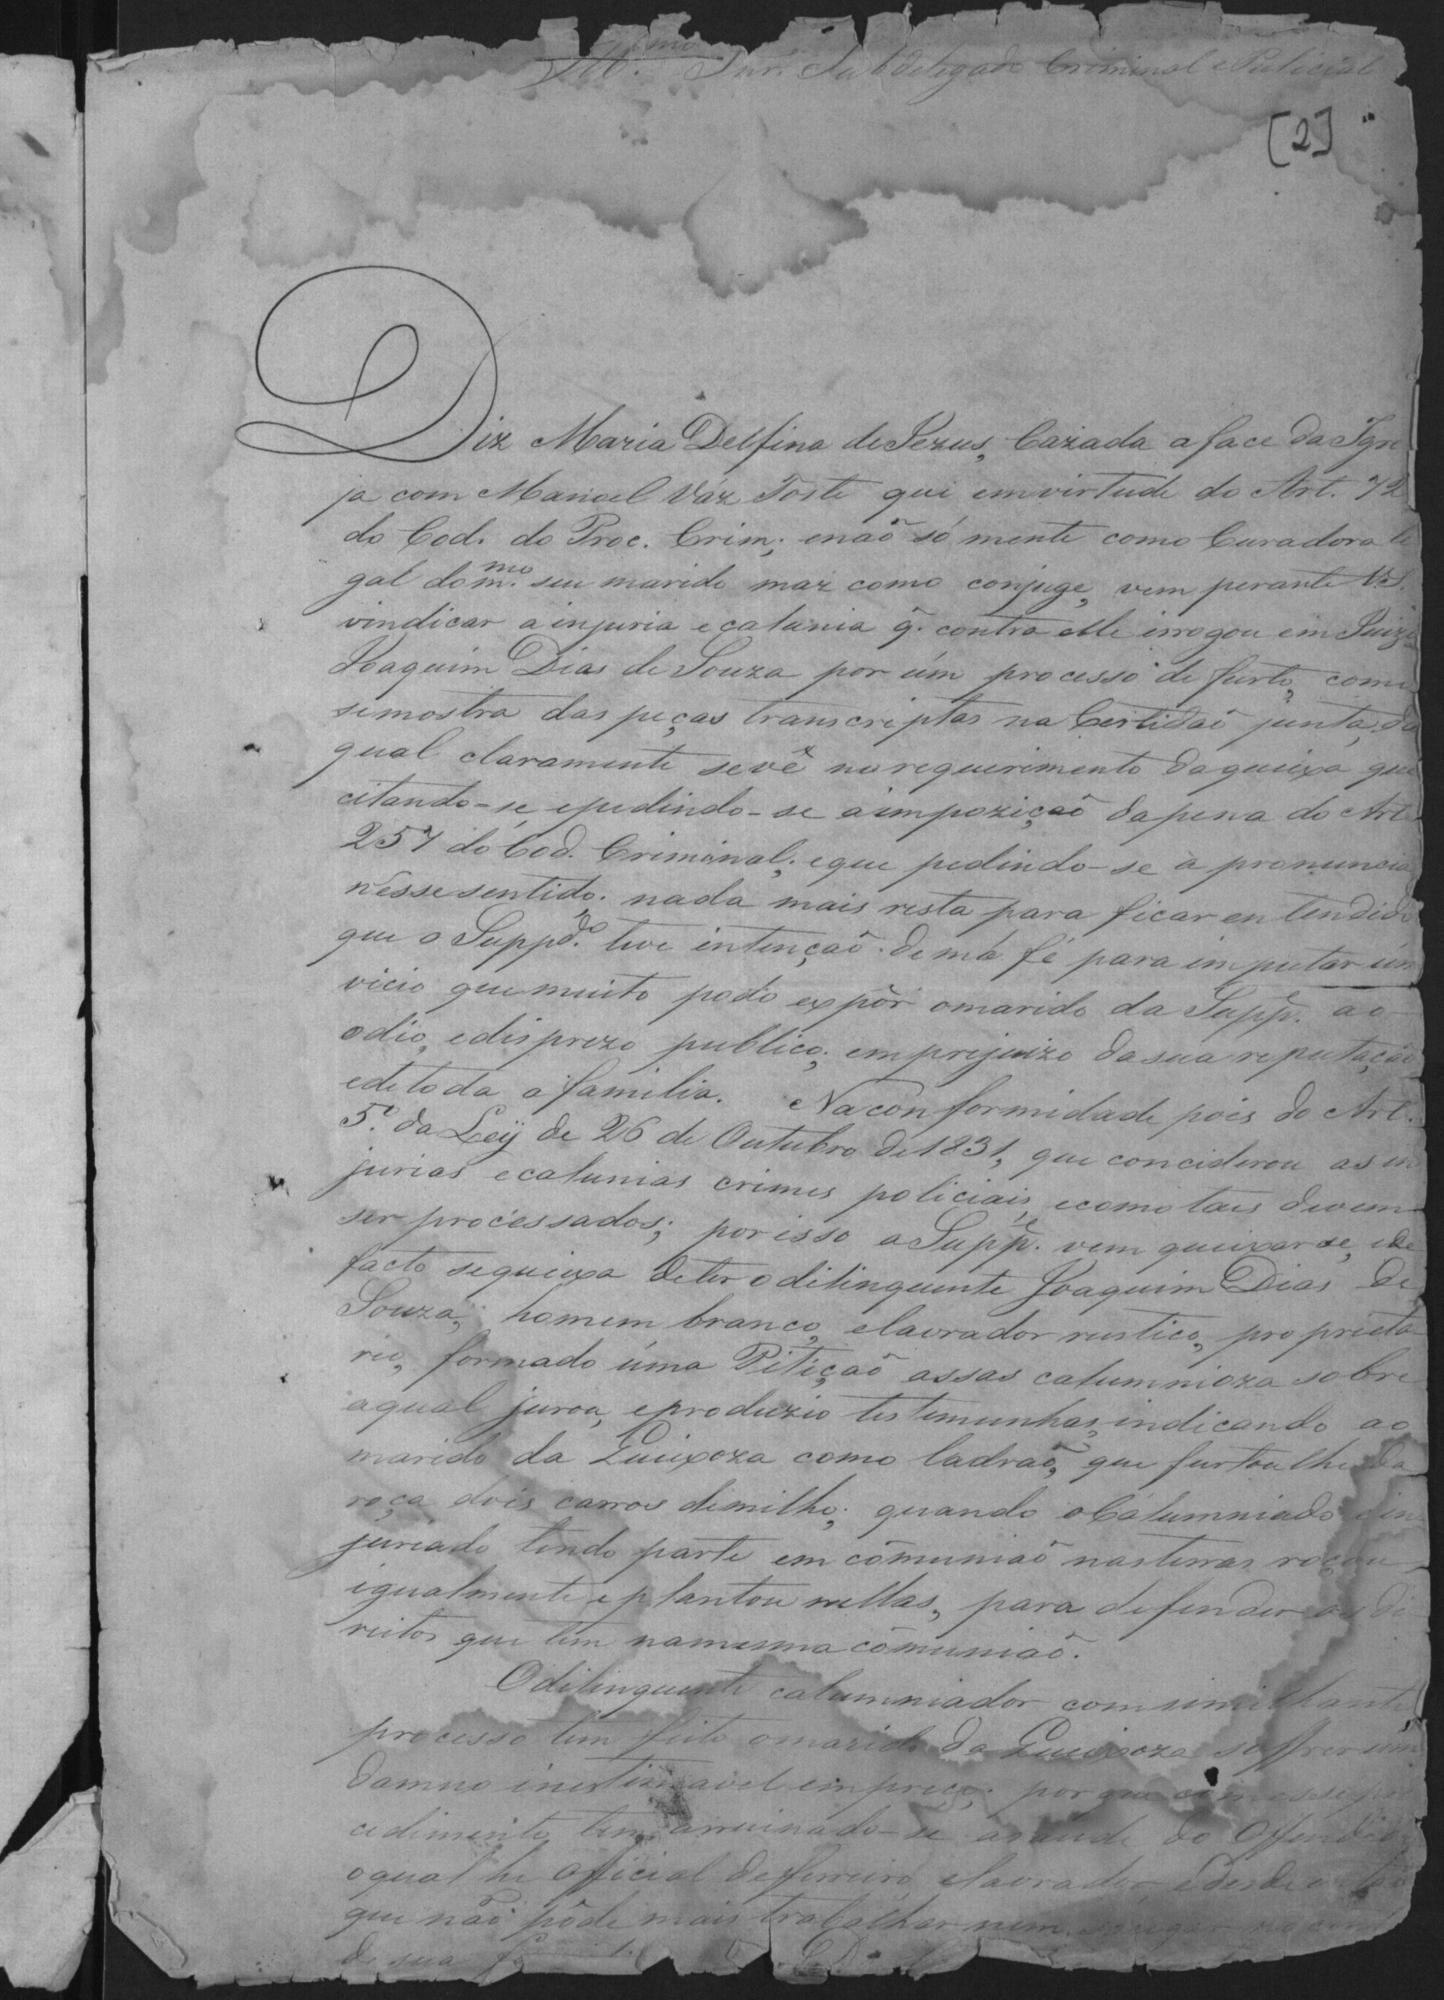 Ill.mo Snr. Subdelegado Criminal e Policial
[2]
Diz Maria Delfina de Jezus, Cazada a face da Igre
ja com Manoel Váz Toste que emvirtude do Art. 72
do Cod. do Proc. Crim; enaõ só mente como Curadora le
gal dom.mo seu marido maz como conjuge, vem perante V.S.
vindicar a injuria e calunia q̃. contra elle irrogou em Juizo
Joaquim Dias de Souza por úm processo de furto, como
semostra das peças transcriptas na Certidaõ junta, da
qual claramente sevê norequerimento daqueixa que
citando-se, epedindo-se aimpoziçaõ dapena do Art.
257 do Cod. Criminal; eque pedindo-se à pronuncia
nésse sentido. nada mais resta para ficar en tendido
que o Suppd.o teve intençaõ de má fé para imputar úm
vicio que muito pode expôr omarido da Supp.e ao
odio, edisprezo publico; emprejuizo dasua reputaçaõ
edetoda a familia. Na conformidade pois do Art.
5.o da Leÿ de 26 de Outubro de 1831, que conciderou as in
jurias ecalunias crimes policiais, ecomo tais devem
ser procéssados; por isso a Supp.e vem queixar se, ede
facto sequeixa deter o dilinquente Joaquim Dias de
Souza, homem branco, elavrador rustico, proprieta
rio, formado úma Pitiçaõ assas calumnioza sobre
aqual jurou, eproduzio testemunhas, indicando ao
marido da Queixoza como ladraõ, que furtoulhe da
roça dois carros demilho; quando oCalumniado ein
juriado tendo parte em cõmuniaõ nasterras roçou
igualmente eplantou nellas, para defender os di
reitos que tem namesma cõmuniaõ.
Odilinquente calumniador comsimilhante
processo tem feito omarido da Queixoza soffrer úm
damno inestimavel empreço; porque com esse pro
cedimento tem arruinado-se asaude do Offendido
oqual he official deferreiro, elavrador, edesde então
que não pôde mais trabalhar nem
de sua